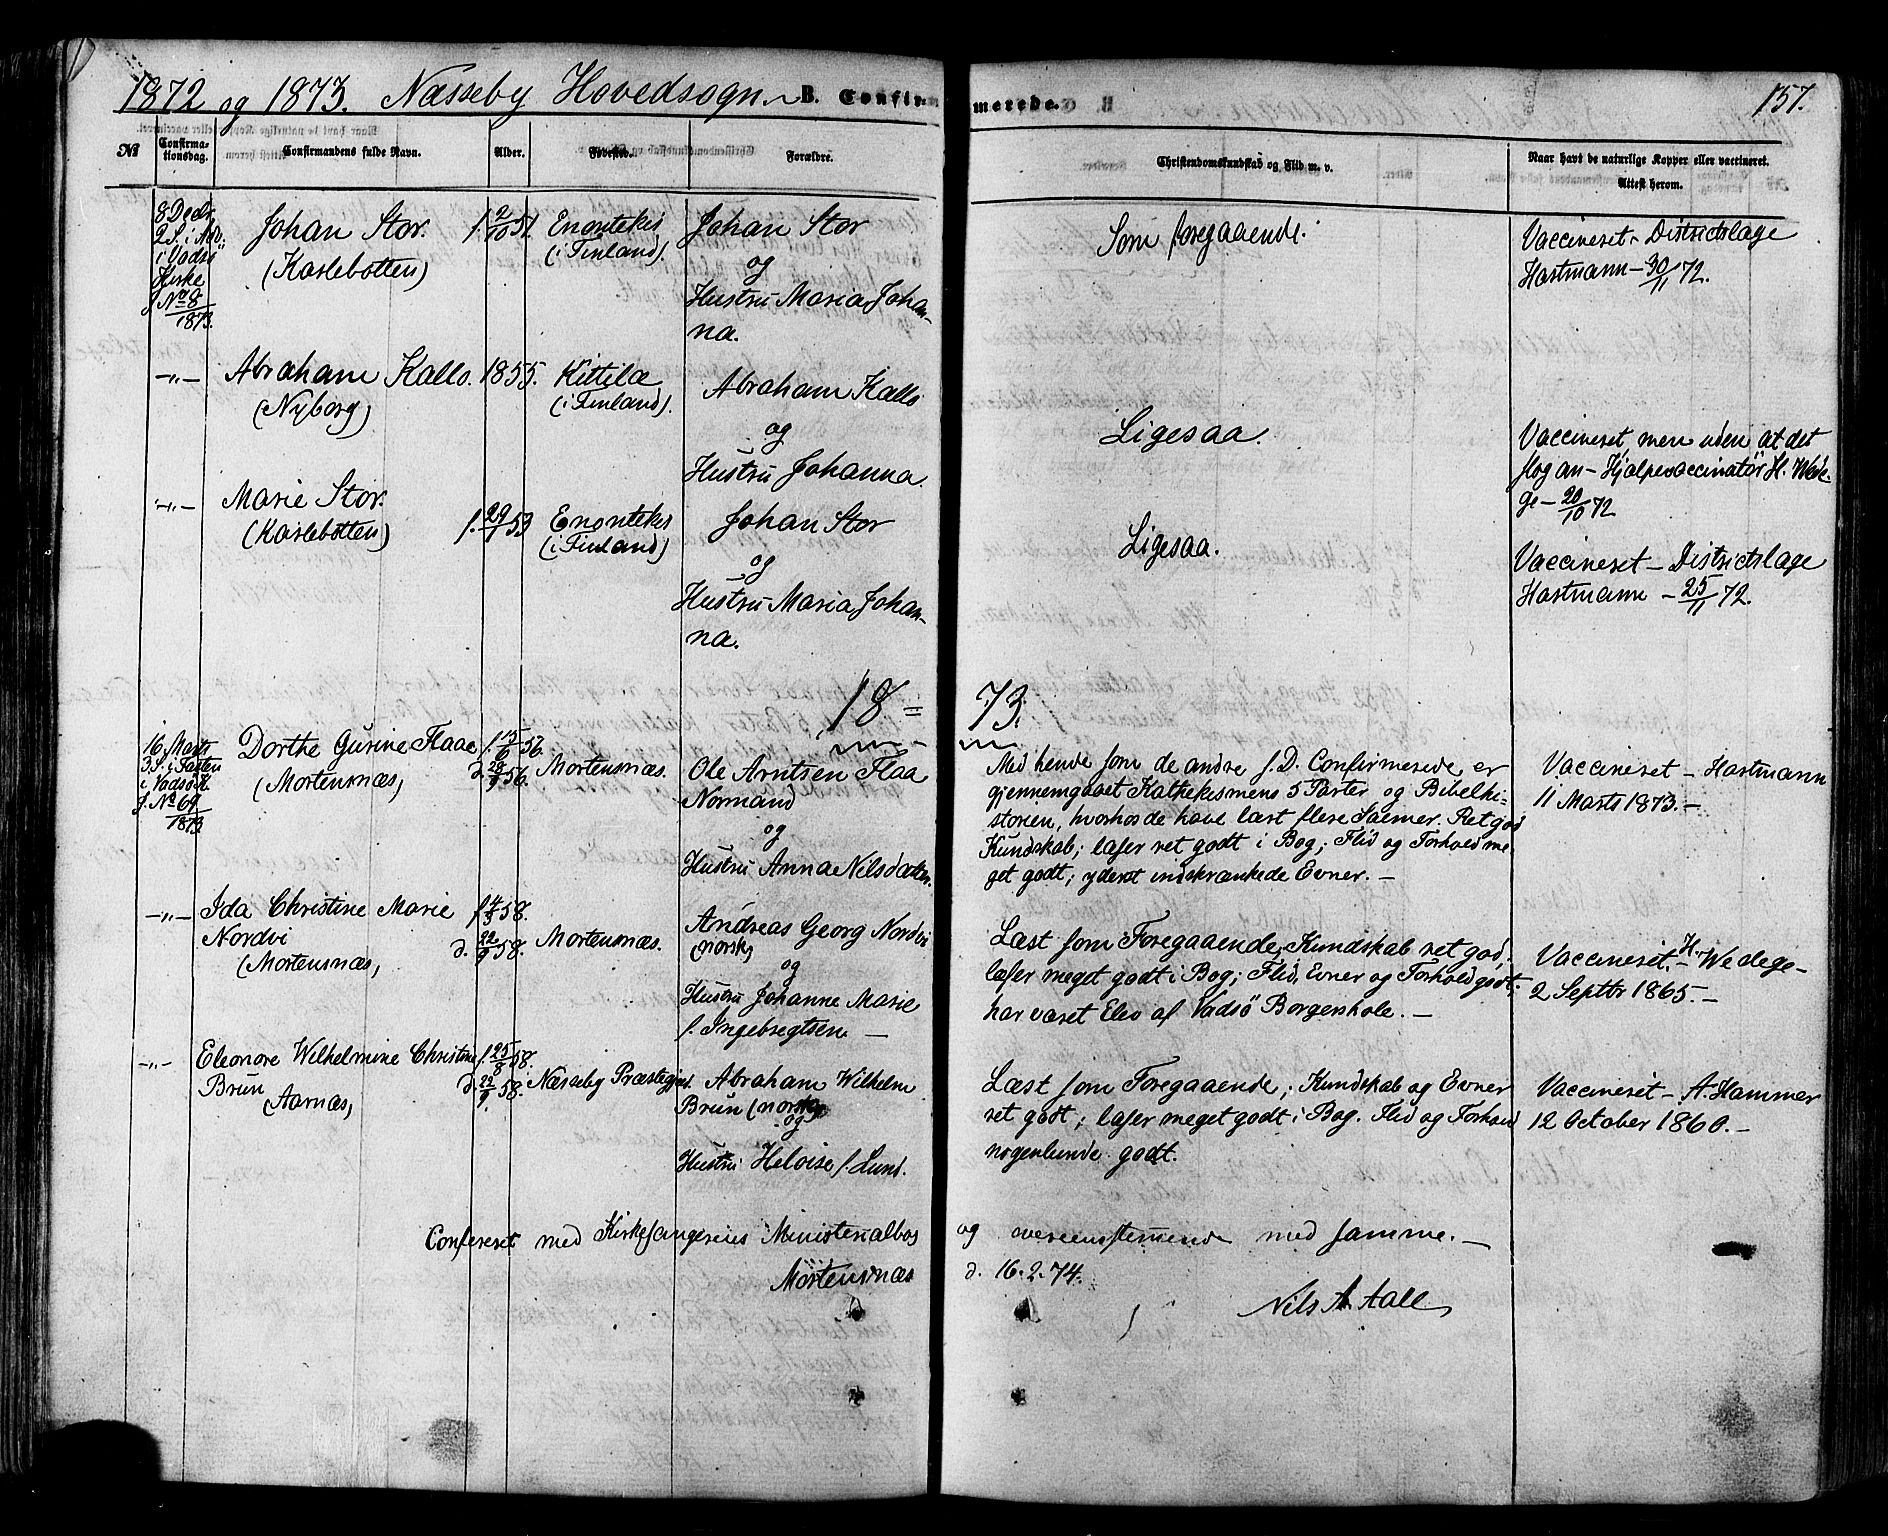 1872 og 1873. Næsseby Hovedsogn. B. Confirmerede. 157.
No
Confirmationsdag.
Confirmandens fulde Navn.
Alder.
Fødested.
Forældre.
Christendomskundskab og Flid m. v.
Naar havt de naturlige Kopper eller vaccineret.
Attest herom.
8 Decbr.
2 S. i Adv.
i Vadsø
Kirke
f. No 8
1873.
Johan Stor.
(Karlebotten)
f. 2/10 51.
Enontekis
(i Finland).
Johan Stor
og
Hustru Maria Johan-
na.
Som foregaaende.
Vaccineret - Districtslæge
Hartmann - 30/11 72.
-"-
Abraham Kallo.
(Nyborg)
1855.
Kittilæ
(i Finland).
Abraham Kallo
og
Hustru Johanna.
Ligesaa.
Vaccineret, men uden at det
slog an - Hjælpevaccinatør H. Wede-
ge - 20/10 72
-"-
Marie Stor.
(Karlebotten)
f. 29/7 53
Enontekis
(i Finland)
Johan Stor
og
Hustru Maria Johan-
na.
Ligesaa.
Vaccineret - Districtslæge
Hartmann - 25/11 72.
18=73.
16 Marts
3 S. i Fasten
i Vadsø K.
f. No 69
1873
Dorthe Gurine Flaae
(Mortensnæs)
f. 15/6 56.
d. 28/9 56.
Mortensnæs.
Ole Arntsen Flaa
Normand
og
Hustru Anna Nilsdatter.
Med hende som de andre s. D. Confirmerede er
gjennemgaaet Kathekismens 5 Parter og Bibelhi-
storien, hvorhos de have læst flere Salmer. Ret god
Kundskab; læser ret godt i Bog; Flid og Forhold me-
get godt; yderst indskrænkede Evner. -
Vaccineret - Hartmann
11 Marts 1873. -
-"-
Ida Christine Marie
Nordvi
(Mortensnæs)
f. 4/3 58.
d. 22/9 58.
Mortensnæs.
Andreas Georg Nordvi
(norsk)
og
Hustru Johanne Marie
f. Ingebregtsen. -
Læst som Foregaaende, Kundskab ret god,
læser meget godt i Bog; Flid, Evner og Forhold godt;
har været Elev af Vadsö Borgerskole. -
Vaccineret, - H. Wedege -
2 Septbr 1865. -
-"-
Eleonore Wilhelmine Christine
Brun
(Aarnæs)
f. 25/8 58.
d. 22/9 58.
Næsseby Præstegjæld.
Abraham Wilhelm
Brun (norsk)
og
Hustru Heloise f. Lund.
Læst som Foregaaende; Kundskab og Evner
ret godt; læser meget godt i Bog. Flid og Forhold
nogenlunde godt.
Vaccineret - A. Hammer
12 October 1860. -
Confereret med Kirkesangerens Ministerialbog og overeensstemmende med samme. -
Mortensnæs d. 16. 2. 74.
Nils A. Aall